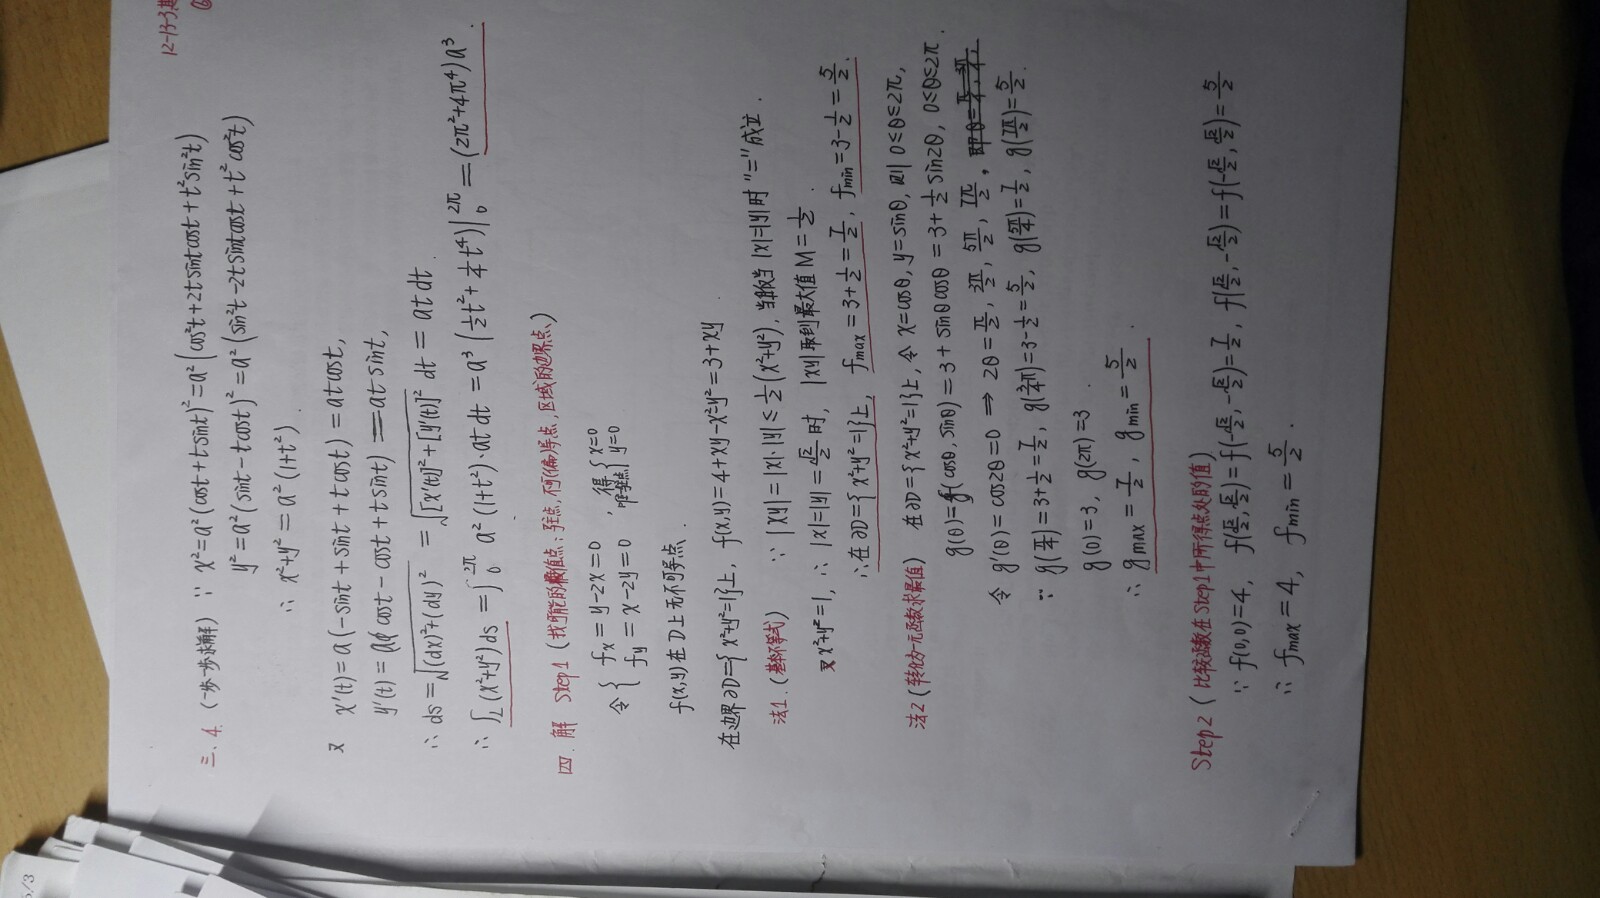 12-13-3期
三.4. (一步一步求解) ∵ x²=a²(cost+tsint)²=a²(cos²t+2tsintcost+t²sin²t)
y²=a²(sint-tcost)²=a²(sin²t-2tsintcost+t²cos²t)
∴ x²+y²=a²(1+t²).
又 x'(t)=a(-sint+sint+tcost)=atcost,
y'(t)=a(cost-cost+tsint)=atsint,
∴ ds=√((dx)²+(dy)²)=√([x'(t)]²+[y'(t)]²)dt=atdt.
∴ ∫_L(x²+y²)ds=∫₀^{2π}a²(1+t²)·atdt=a³(½t²+¼t⁴)|₀^{2π}=(2π²+4π⁴)a³.
四. 解 Step1 (找可能的最值点: 驻点, 不可(偏)导点, 区域的边界点)
令 { fx=y-2x=0, fy=x-2y=0, 得唯一驻点 { x=0 y=0
f(x,y)在D上无不可导点.
在边界∂D={x²+y²=1}上, f(x,y)=4+xy-x²-y²=3+xy.
法1. (基本不等式) ∵ |xy|=|x|·|y|≤½(x²+y²), 当且仅当|x|=|y|时"="成立.
又x²+y²=1, ∴ |x|=|y|=√2/2时, |xy|取到最大值M=½.
∴在∂D={x²+y²=1}上, fmax=3+½=7/2, fmin=3-½=5/2.
法2 (转化为一元函数求最值) 在∂D={x²+y²=1}上, 令x=cosθ, y=sinθ, 则0≤θ≤2π,
g(θ)=f(cosθ,sinθ)=3+sinθcosθ=3+½sin2θ, 0≤θ≤2π.
令g'(θ)=cos2θ=0 ⇒ 2θ=π/2, 3π/2, 5π/2, 7π/2,
∵ g(π/4)=3+½=7/2, g(3π/4)=3-½=5/2, g(5π/4)=7/2, g(7π/2)=5/2.
g(0)=3, g(2π)=3
∴ gmax=7/2, gmin=5/2.
Step2 (比较函数在Step1中所得点处的值)
∵ f(0,0)=4, f(√2/2,√2/2)=f(-√2/2,-√2/2)=7/2, f(√2/2,-√2/2)=f(-√2/2,√2/2)=5/2
∴ fmax=4, fmin=5/2.